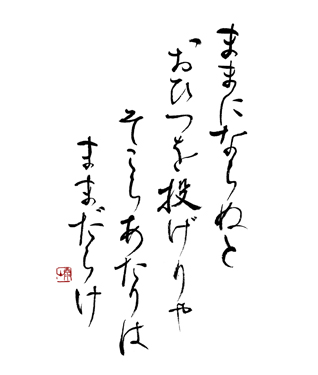 ままにならぬと
おひつを投げりゃ
そこらあたりは
ままだらけ